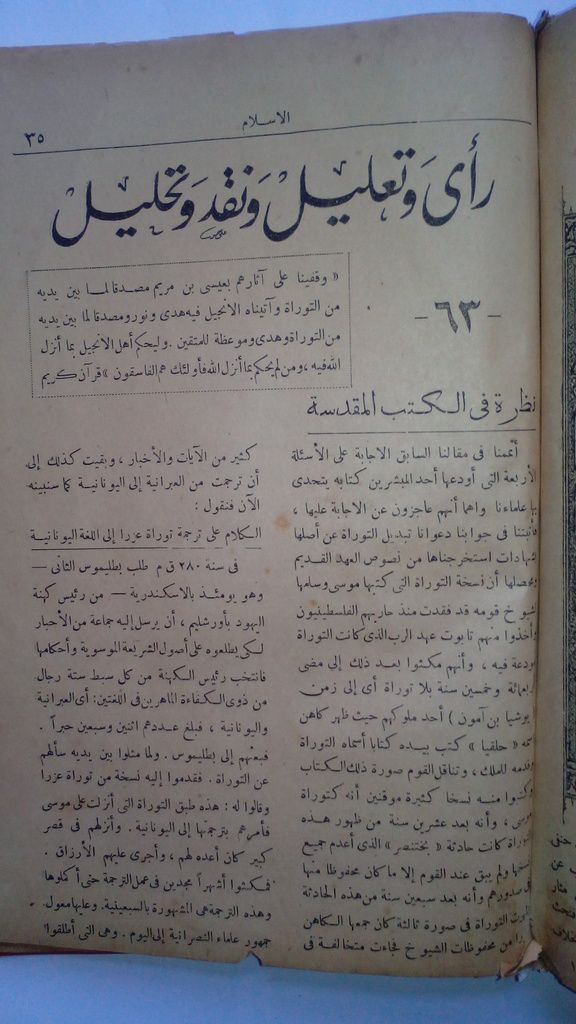 الاسلام
٣٥
رأى وتعليل ونقد وتحليل
« وقفينا على آثارهم بعيسى بن مريم مصدقا لما بين يديه
من التوراة وآتيناه الانجيل فيه هدى ونور ومصدقا لما بين يديه
من التوراة وهدى وموعظة للمتقين . وليحكم أهل الانجيل بما أنزل
الله فيه ، ومن لم يحكم بما أنزل الله فأولئك هم الفاسقون » قرآن كريم
- ٦٣ -
نظرة فى الكتب المقدسة
أتممنا فى مقالنا السابق الاجابة على الأسئلة
الأربعة التى أودعها أحد المبشرين كتابه يتحدى
بها علماءنا واهما أنهم عاجزون عن الاجابة عليها ،
فأثبتنا فى جوابنا دعوانا تبديل التوراة عن أصلها
بشهادات استخرجناها من نصوص العهد القديم
ومحصلها أن نسخة التوراة التى كتبها موسى وسلمها
لشيوخ قومه قد فقدت منذ حاربهم الفلسطينيون
وأخذوا منهم تابوت عهد الرب الذى كانت التوراة
مودعة فيه ، وأنهم مكثوا بعد ذلك إلى مضى
أربعمائة وخمسين سنة بلا توراة أى إلى زمن
( يوشيا بن آمون ) أحد ملوكهم حيث ظهر كاهن
اسمه « حلقيا » كتب بيده كتابا أسماه التوراة
وقدمه للملك ، وتناقل القوم صورة ذلك الكتاب
وكتبوا منه نسخا كثيرة موقنين أنه كتوراة
موسى ، وأنه بعد عشرين سنة من ظهور هذه
التوراة كانت حادثة « بختنصر » الذى أعدم جميع
نسخها ولم يبق عند القوم إلا ما كان محفوظا منها
فى صدورهم وأنه بعد سبعين سنة من هذه الحادثة
ظهرت التوراة فى صورة ثالثة كان جمعها الكاهن
من محفوظات الشيوخ فجاءت متخالفة فى
كثير من الآيات والأخبار ، وبقيت كذلك إلى
أن ترجمت من العبرانية إلى اليونانية كما سنبينه
الآن فنقول :
الكلام على ترجمة توراة عزرا إلى اللغة اليونانية
فى سنة ٢٨٠ ق م طلب بطليموس الثانى —
وهو يومئذ بالاسكندرية — من رئيس كهنة
اليهود بأورشليم ، أن يرسل إليه جماعة من الأحبار
لكى يطلعوه على أصول الشريعة الموسوية وأحكامها
فانتخب رئيس الكهنة من كل سبط ستة رجال
من ذوى الكفاءة الماهرين فى اللغتين : أى العبرانية
واليونانية ، فبلغ عددهم اثنين وسبعين حبراً .
فبعثهم إلى بطليموس . ولما مثلوا بين يديه سألهم
عن التوراة . فقدموا إليه نسخة من توراة عزرا
وقالوا له : هذه طبق التوراة التى أنزلت على موسى
فأمرهم بترجمتها إلى اليونانية . وأنزلهم فى قصر
كبير كان أعده لهم ، وأجرى عليهم الأرزاق .
فمكثوا أشهراً مجدين فى عمل الترجمة حتى أكملوها
وهذه الترجمة هى المشهورة بالسبعينية . وعليها معول
جمهور علماء النصرانية إلى اليوم . وهى التى أطلقوا